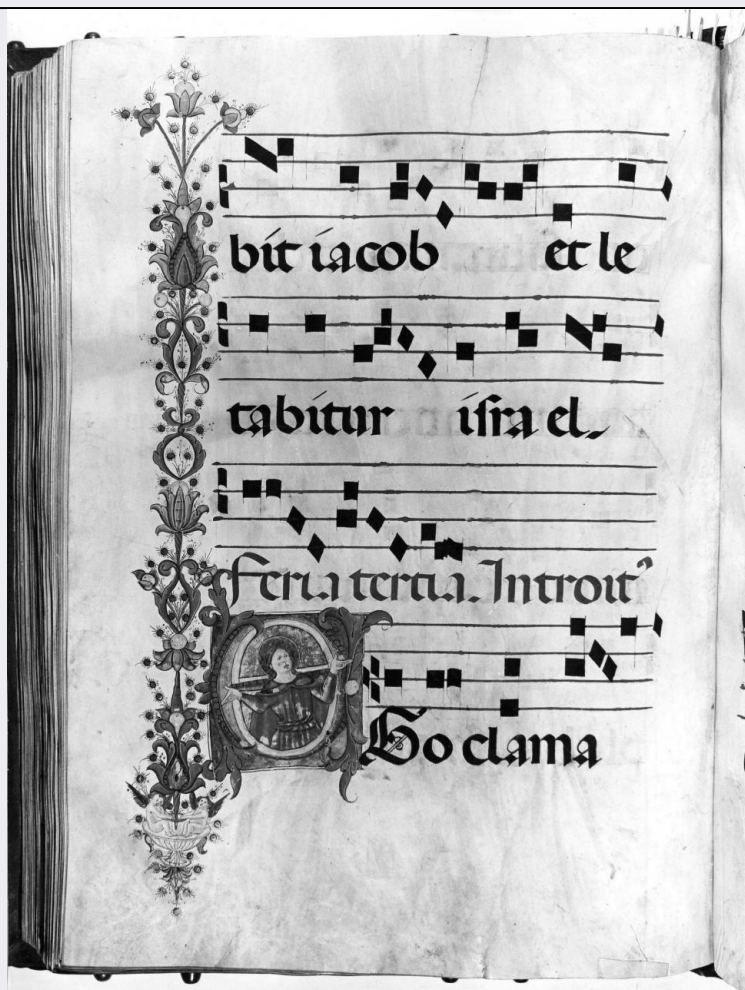 bit iacob et le
tabitur israel.
Feria tertia. Introit⁹
EGo clama